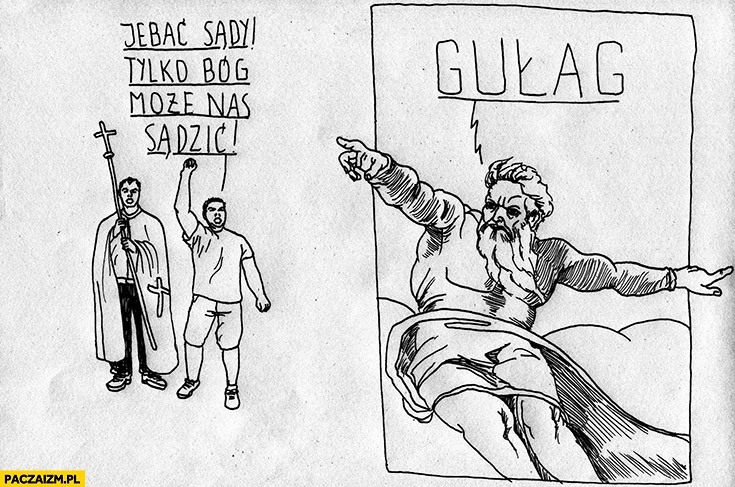 JEBAĆ SĄDY!
TYLKO BÓG
MOŻE NAS
SĄDZIĆ!
GUŁAG
PACZAIZM.PL